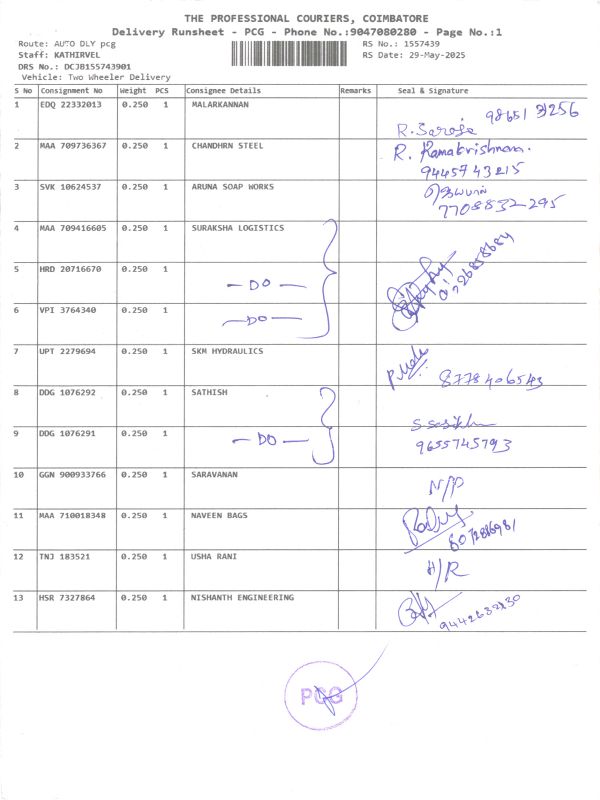 THE PROFESSIONAL COURIERS, COIMBATORE
Delivery Runsheet - PCG - Phone No.:9047080280 - Page No.:1
Route: AUTO DLY pcg RS No.: 1557439
Staff: KATHIRVEL RS Date: 29-May-2025
DRS No.: DCJB155743901
Vehicle: Two Wheeler Delivery
S No Consignment No Weight PCS Consignee Details Remarks Seal & Signature
1 EDQ 22332013 0.250 1 MALARKANNAN
R. Saroja
2 MAA 709736367 0.250 1 CHANDHRN STEEL R. Ramakrishnan.
9445743215
3 SVK 10624537 0.250 1 ARUNA SOAP WORKS
7708832295
4 MAA 709416605 0.250 1 SURAKSHA LOGISTICS
5 HRD 20716670 0.250 1
— DO —
6 VPI 3764340 0.250 1
— DO —
7 UPT 2279694 0.250 1 SKM HYDRAULICS
8778406543
8 DDG 1076292 0.250 1 SATHISH
9 DDG 1076291 0.250 1 — DO — 9655745793
10 GGN 900933766 0.250 1 SARAVANAN
N/P
11 MAA 710018348 0.250 1 NAVEEN BAGS
12 TNJ 183521 0.250 1 USHA RANI
H/R
13 HSR 7327864 0.250 1 NISHANTH ENGINEERING
PCG